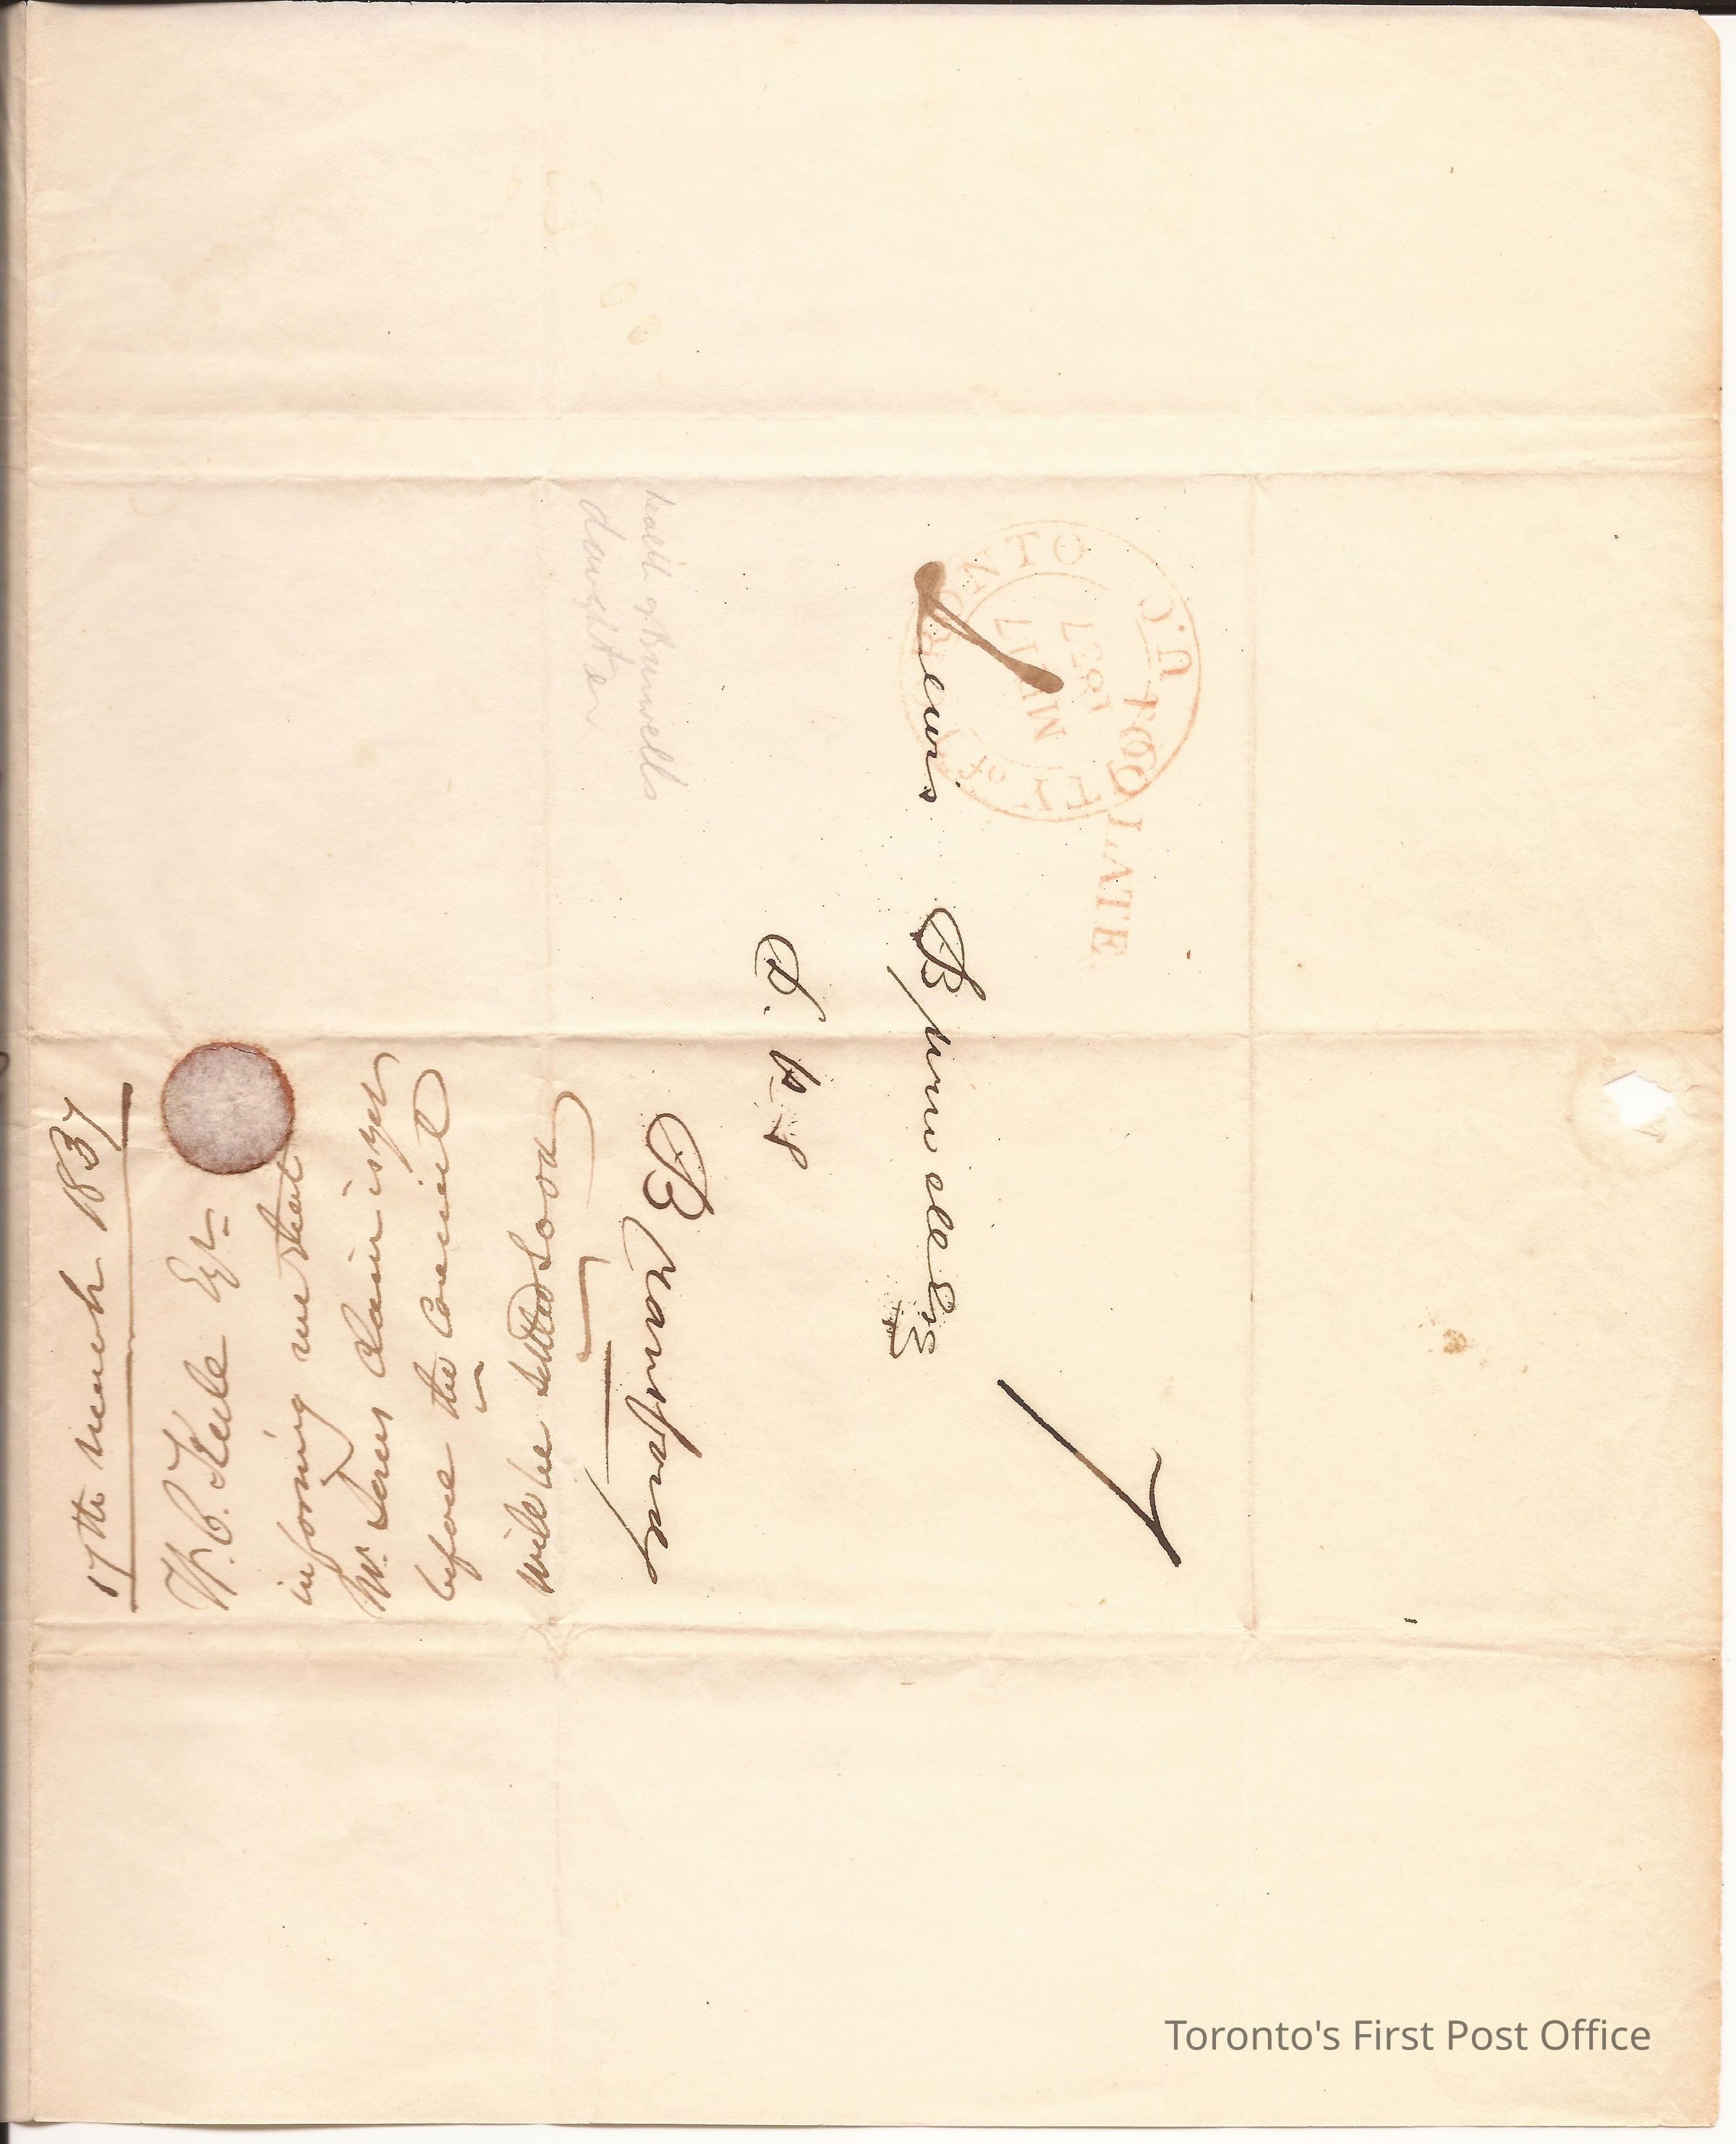 CITY of TORONTO
U.C.
MR 17
1837
TOO LATE
7
Lewis Burwell Esq
D. P. S
Brantford
death of Burwells
daughter
17th March 1837
W. C. Keele Esqr
informing me that
Mr. claim is yet
before the Council
will be settled soon
Toronto's First Post Office